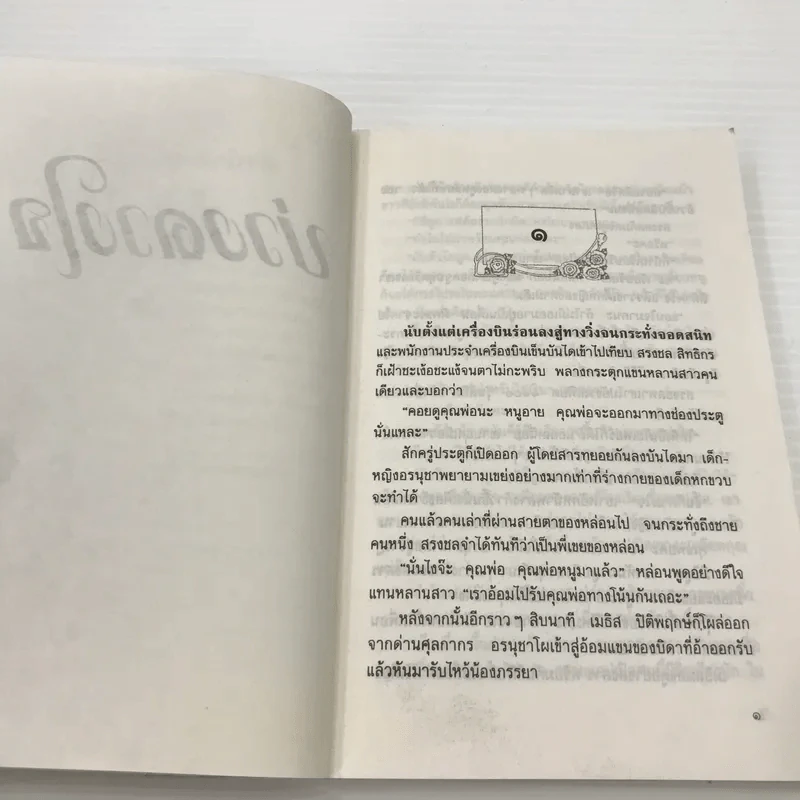 บ่วงดวงใจ
๑
นับตั้งแต่เครื่องบินร่อนลงสู่ทางวิ่งจนกระทั่งจอดสนิท
และพนักงานประจำเครื่องบินเข็นบันไดเข้าไปเทียบ สรงชล สิทธิกร
ก็เฝ้าชะเง้อชะแง้จนตาไม่กะพริบ พลางกระตุกแขนหลานสาวคน
เดียวและบอกว่า
“คอยดูคุณพ่อนะ หนูอาย คุณพ่อจะออกมาทางช่องประตู
นั่นแหละ”
สักครู่ประตูก็เปิดออก ผู้โดยสารทยอยกันลงบันไดมา เด็ก-
หญิงอรนุชาพยายามเขย่งอย่างมากเท่าที่ร่างกายของเด็กหกขวบ
จะทำได้
คนแล้วคนเล่าที่ผ่านสายตาของหล่อนไป จนกระทั่งถึงชาย
คนหนึ่ง สรงชลจำได้ทันทีว่าเป็นพี่เขยของหล่อน
“นั่นไงจ๊ะ คุณพ่อ คุณพ่อหนูมาแล้ว” หล่อนพูดอย่างดีใจ
แทนหลานสาว “เราอ้อมไปรับคุณพ่อทางโน้นกันเถอะ”
หลังจากนั้นอีกราว ๆ สิบนาที เมธิส ปิติพฤกษ์ก็โผล่ออก
จากด่านศุลกากร อรนุชาโผเข้าสู่อ้อมแขนของบิดาที่อ้าออกรับ
แล้วหันมารับไหว้น้องภรรยา
๑